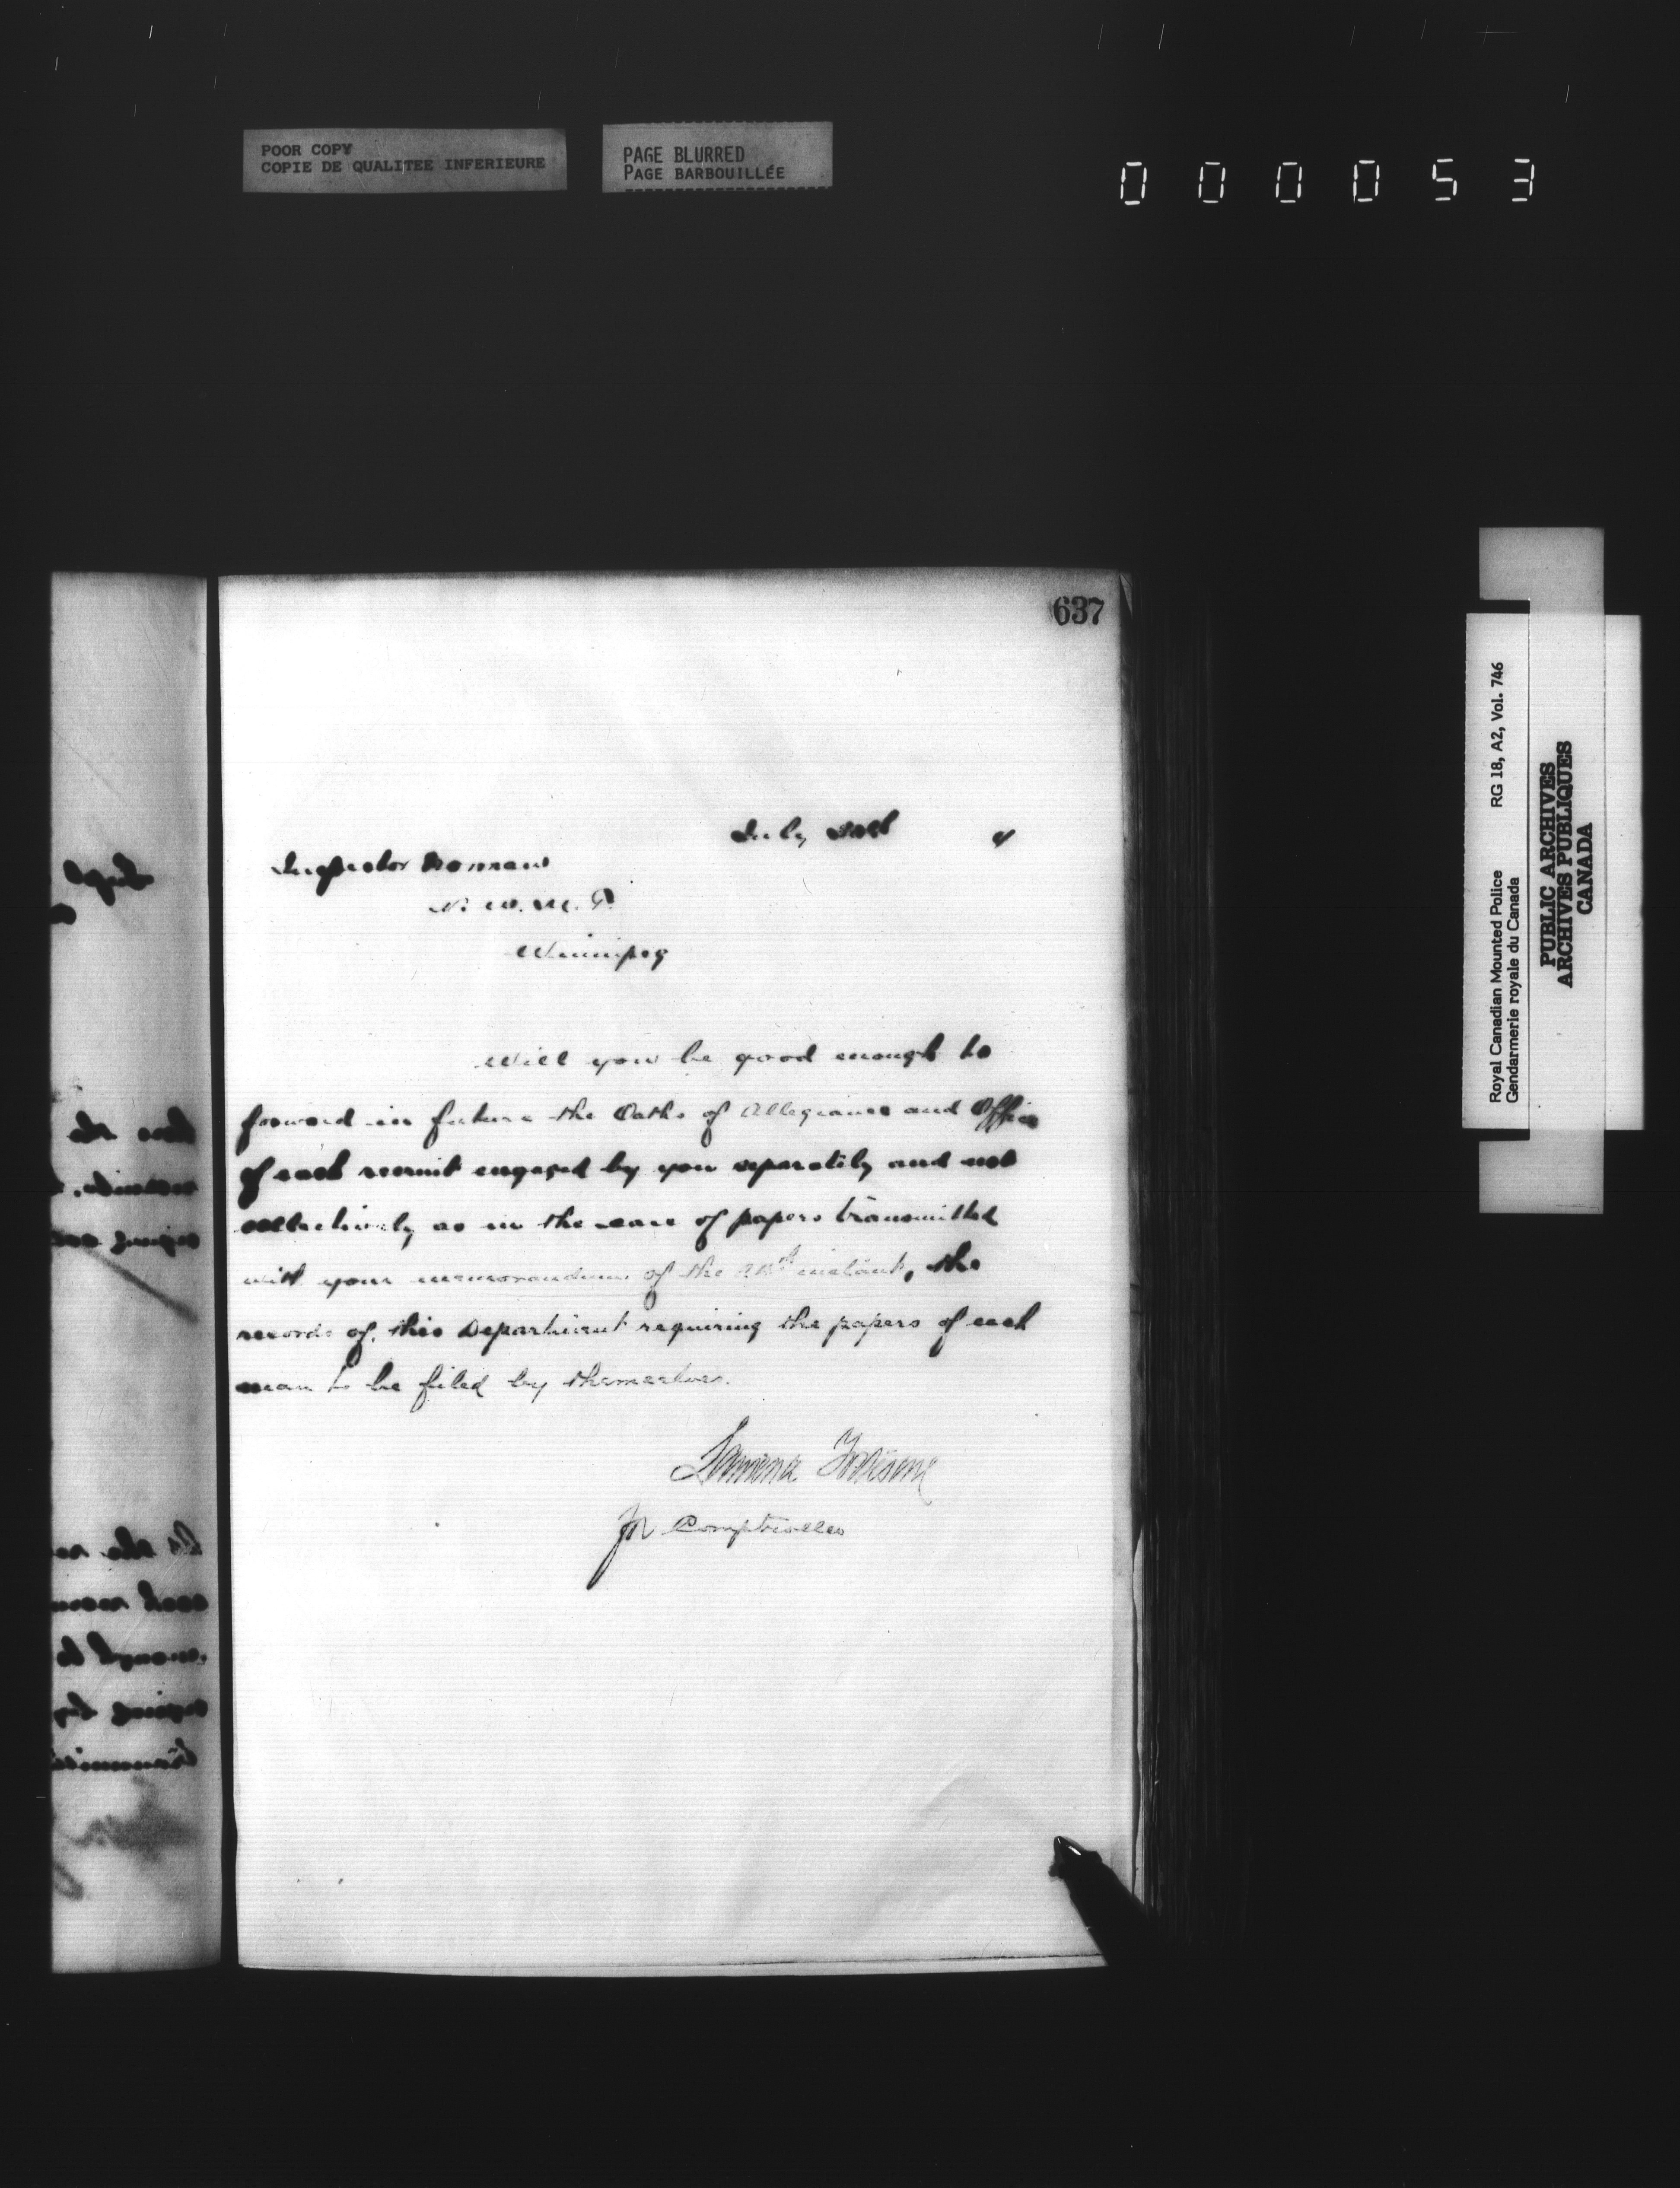 POOR COPY
COPIE DE QUALITEE INFERIEURE
PAGE BLURRED
PAGE BARBOUILLÉE
000053
637
July
Inspector Norman
N. W. M. P.
Winnipeg
Will you be good enough to
forward in future the Oaths of Allegiance and Office
of each recruit engaged by you separately and not
collectively as in the case of papers transmitted
with your memorandum of the instant, the
records of this Department requiring the papers of each
man to be filed by themselves.
Laurence Fortescue
for Comptroller
Royal Canadian Mounted Police RG 18, A2, Vol. 746
Gendarmerie royale du Canada
PUBLIC ARCHIVES
ARCHIVES PUBLIQUES
CANADA